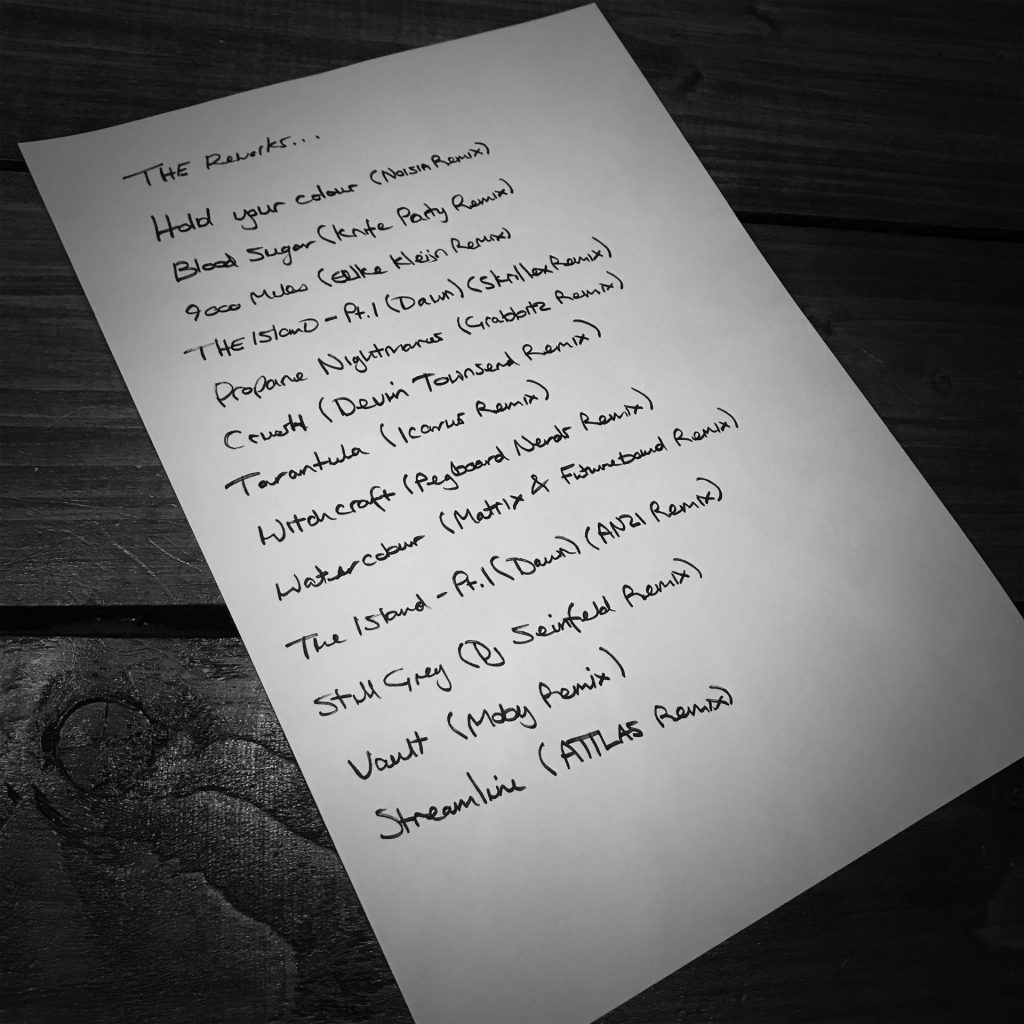 THE Reworks...
Hold your colour (Noisia Remix)
Blood Sugar (Knife Party Remix)
9000 Miles (Eelke Kleijn Remix)
THE ISland - Pt.1 (Dawn) (Skrillex Remix)
Propane Nightmares (Grabbitz Remix)
Crush (Devin Townsend Remix)
Tarantula (Icarus Remix)
Witchcraft (Pegboard Nerds Remix)
Watercolour (Matrix & Futurebound Remix)
The Island - Pt.1 (Dawn) (ANZI Remix)
Still Grey (DJ Seinfeld Remix)
Vault (Moby Remix)
Streamline (ATTLAS Remix)